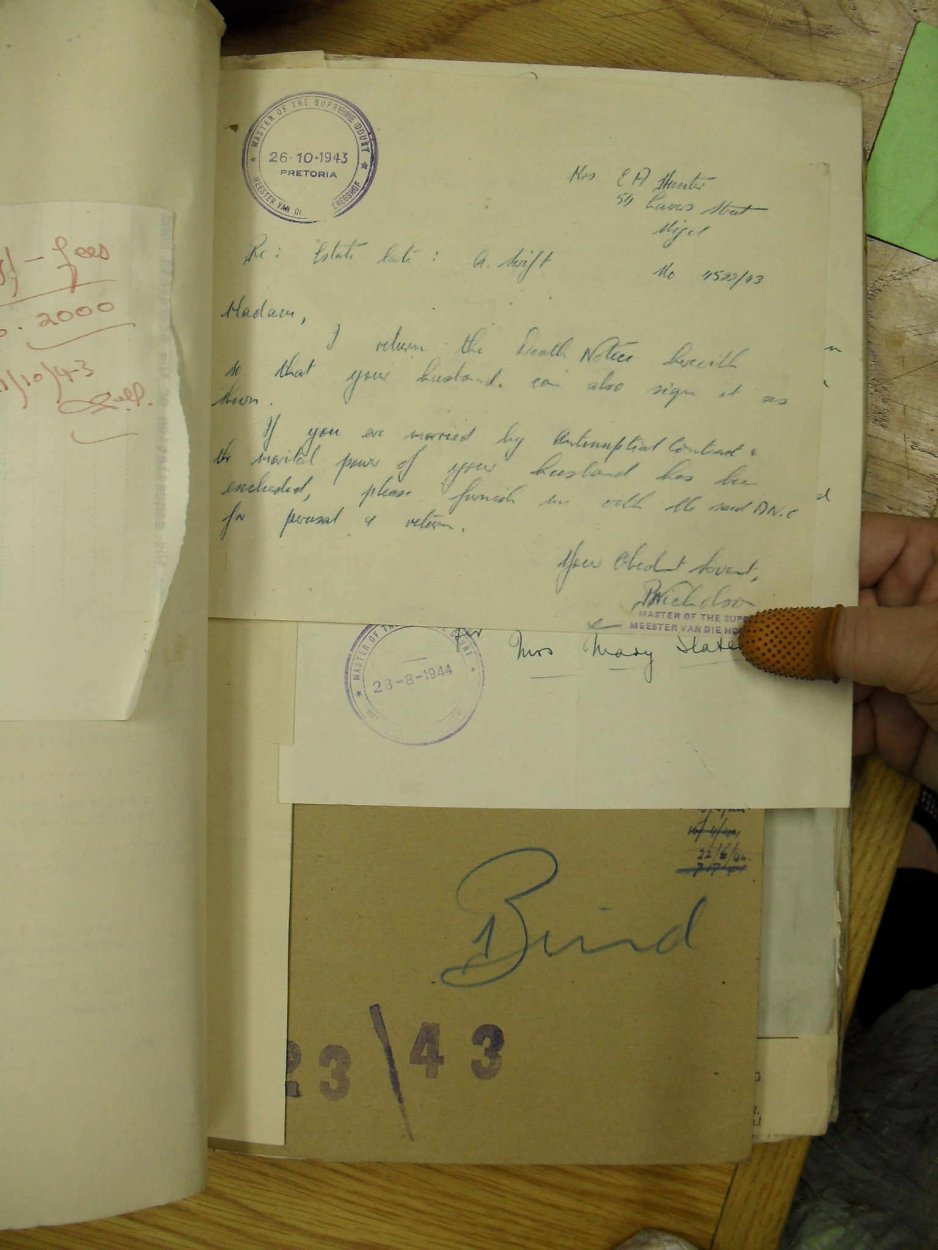 MASTER OF THE SUPREME COURT
26·10-1943
PRETORIA
MEESTER VAN DI REGSHOF
Mrs E A Hunter
54 Street
Nigel
Re: Estate late: G. Swift No 4523/43
Madam,
I return the Death Notice herewith
so that your husband. can also sign it as
shown.
If you are married by Antenuptial Contract &
the marital power of your husband has been
excluded, please furnish me with the said A.N.C
for perusal & return.
Your Obedient Servant,
Nicholson
MASTER OF THE SUPR
MEESTER VAN DIE HO
Mrs Mary Slate
MASTER OF T COURT
23-8-1944
22/6/44
Bind
23/43
/- fees
2000
/10/43